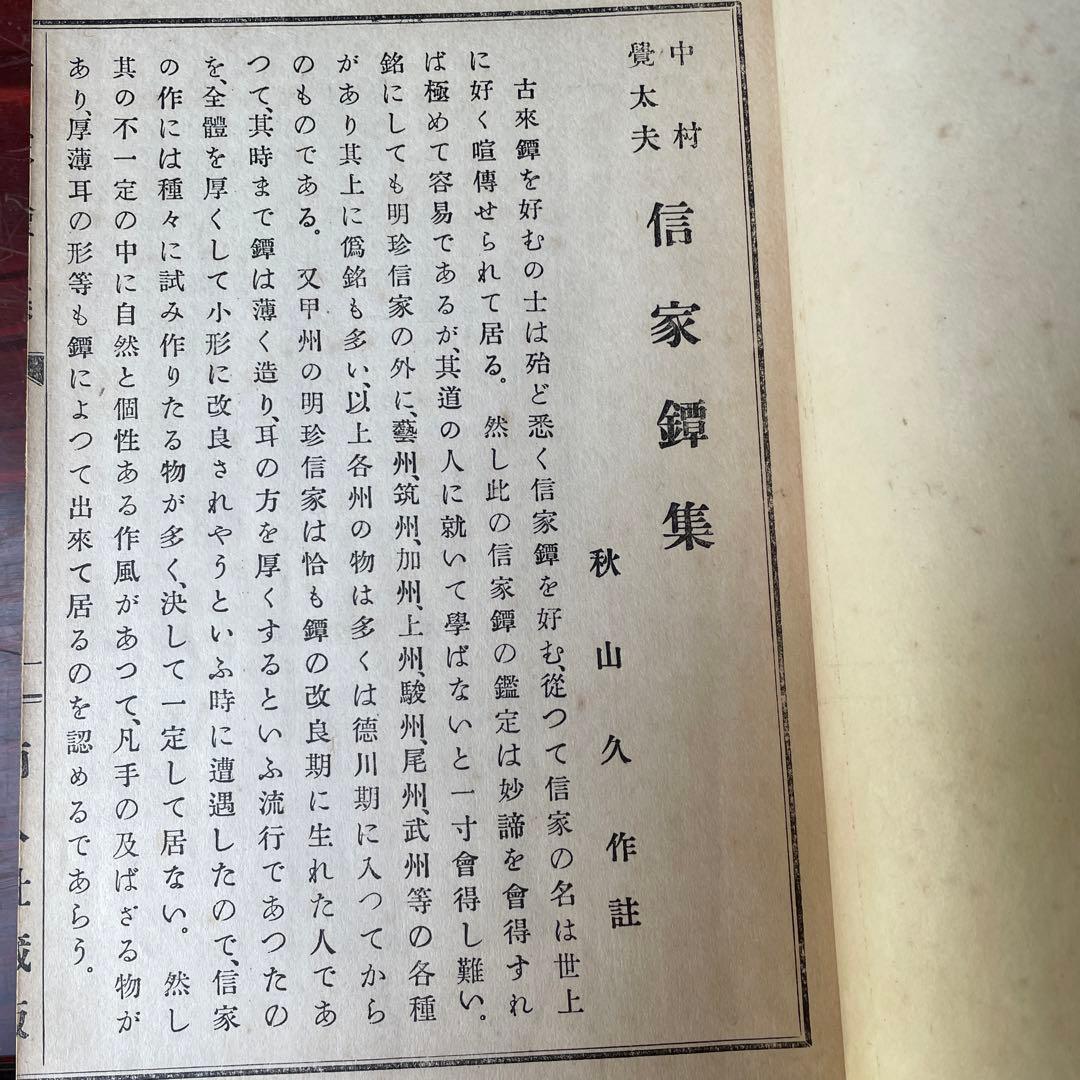 中村
覺太夫
信家鐔集
秋山久作註
古來鐔を好むの士は殆ど悉く信家鐔を好む、從つて信家の名は世上
に好く喧傳せられて居る。然し此の信家鐔の鑑定は妙諦を會得すれ
ば極めて容易であるが、其道の人に就いて學ばないと一寸會得し難い。
銘にしても明珍信家の外に、藝州、筑州、加州、上州、駿州、尾州、武州等の各種
があり其上に僞銘も多い、以上各州の物は多くは德川期に入つてから
のものである。又甲州の明珍信家は恰も鐔の改良期に生れた人であ
つて、其時まで鐔は薄く造り、耳の方を厚くするといふ流行であつたの
を、全體を厚くして小形に改良されやうといふ時に遭遇したので、信家
の作には種々に試み作りたる物が多く、決して一定して居ない。然し
其の不一定の中に自然と個性ある作風があつて、凡手の及ばざる物が
あり、厚薄耳の形等も鐔によつて出來て居るのを認めるであらう。